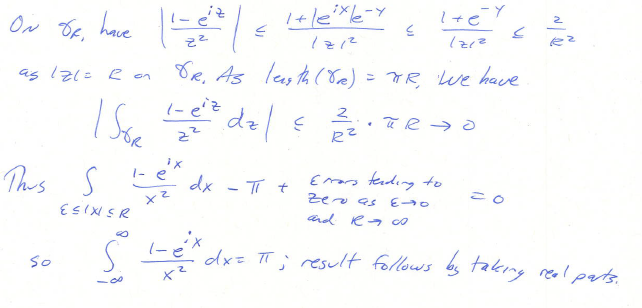 On γR, have | (1-e^{iz})/z² | ≤ (1+|e^{ix}|e^{-y})/|z|² ≤ (1+e^{-y})/|z|² ≤ 2/R²
as |z|=R on γR. As length(γR) = πR, we have
| ∫_{γR} (1-e^{iz})/z² dz | ≤ 2/R² · πR → 0
Thus ∫_{ε≤|x|≤R} (1-e^{ix})/x² dx - π + Errors tending to zero as ε→0 and R→∞ = 0
so ∫_{-∞}^{∞} (1-e^{ix})/x² dx = π ; result follows by taking real parts.